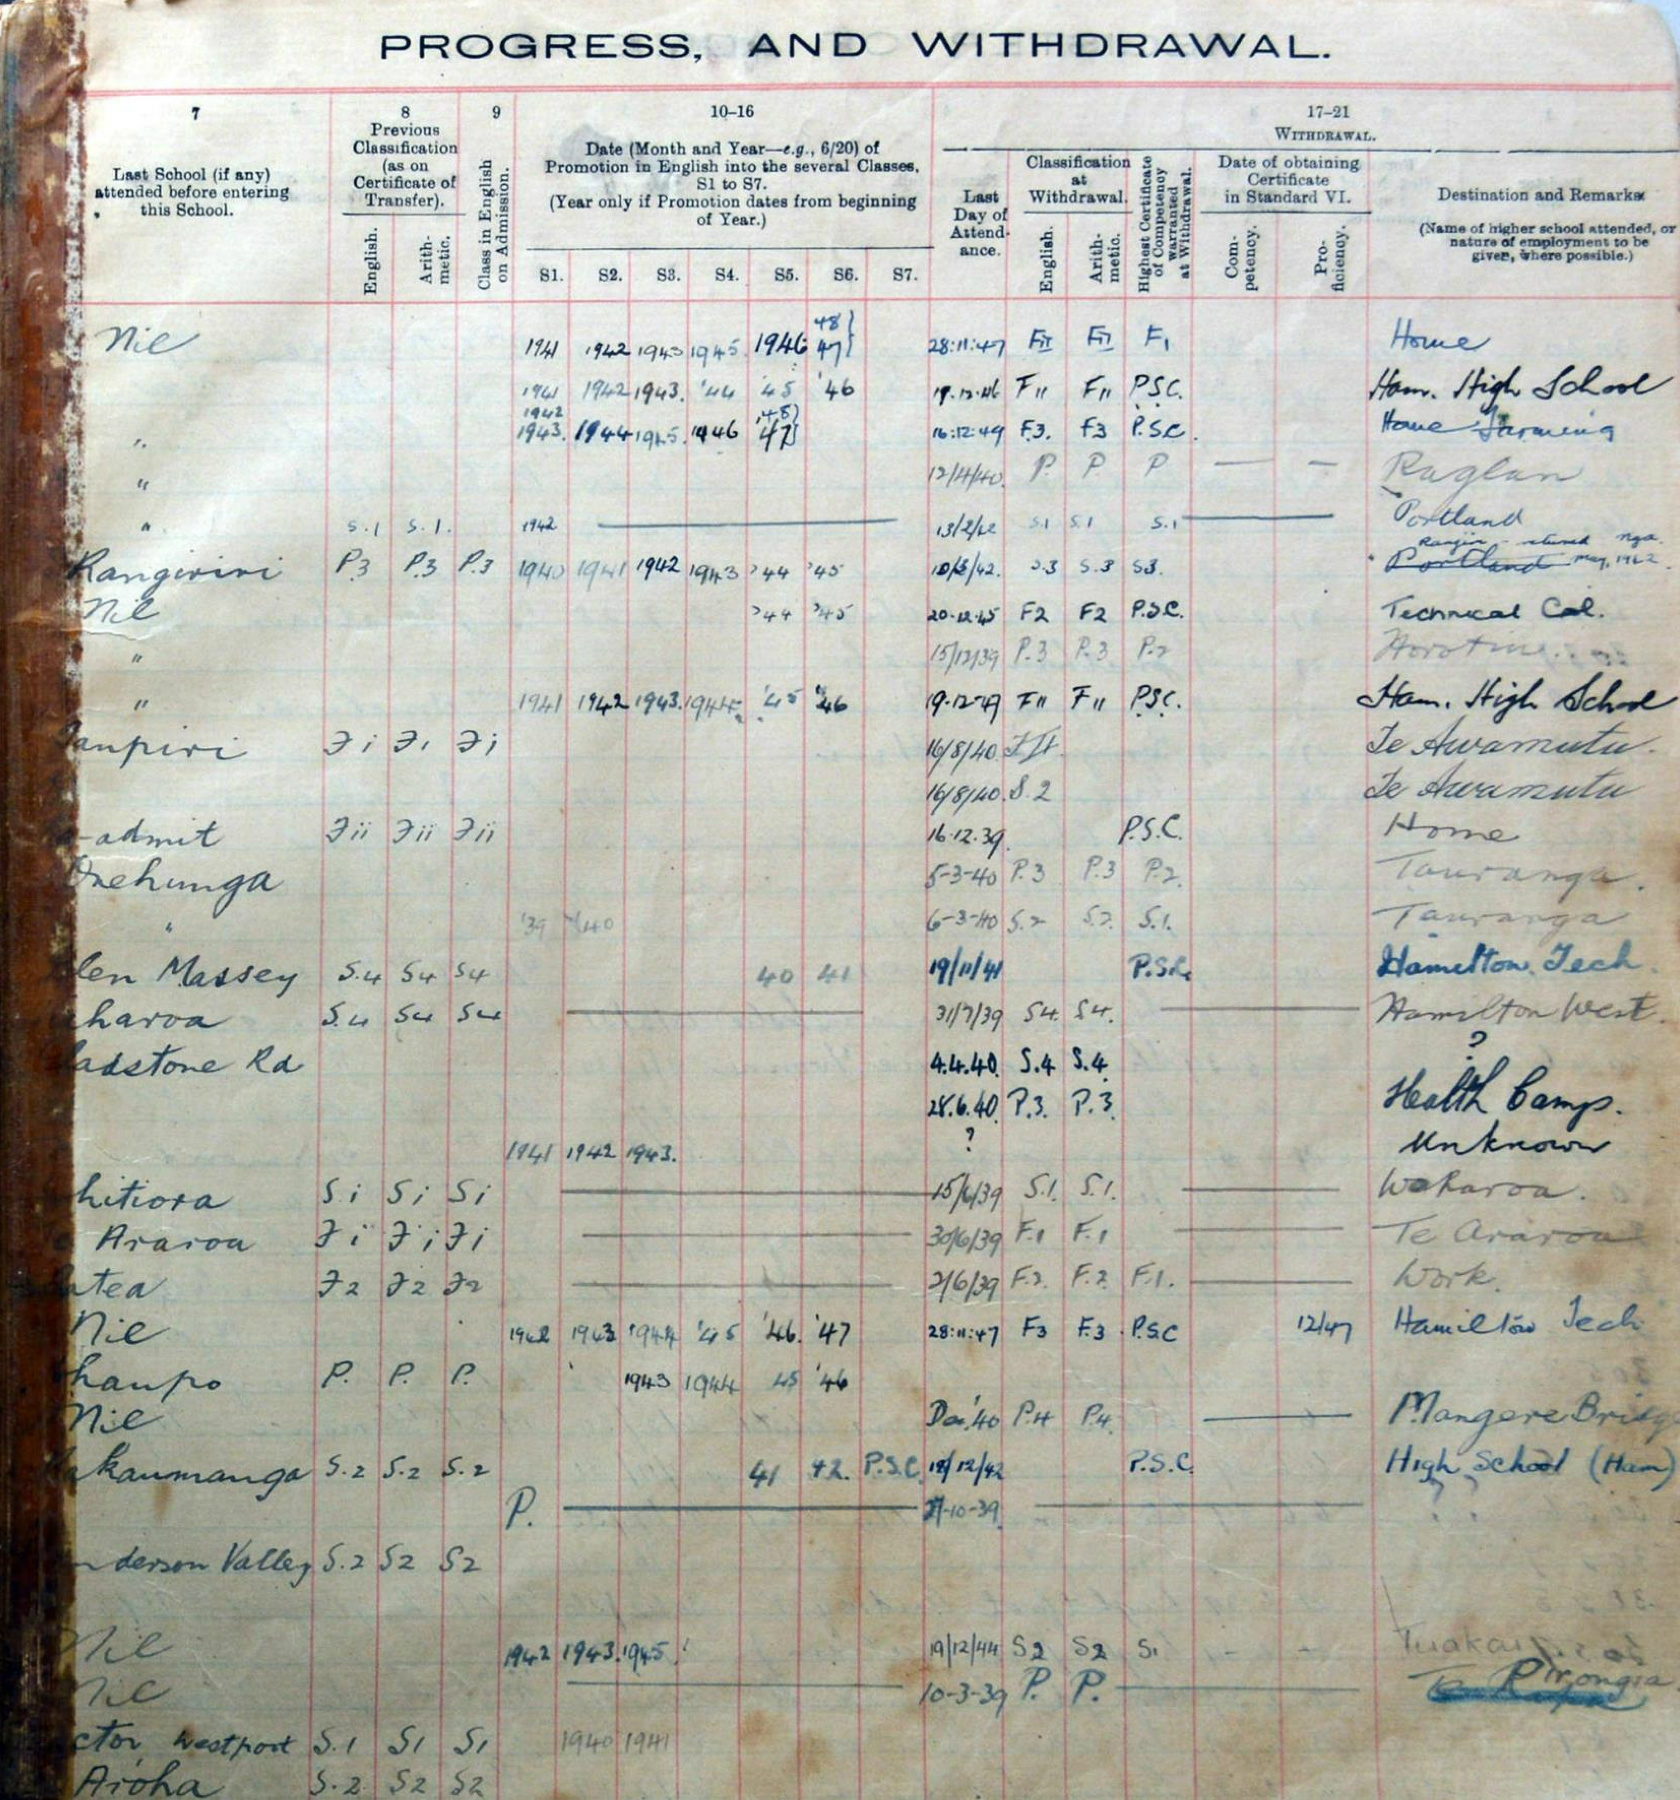 PROGRESS, AND WITHDRAWAL.
7 8 9 10–16 17–21
Last School (if any) attended before entering this School.
Previous Classification (as on Certificate of Transfer).
English. Arith-metic.
Class in English on Admission.
Date (Month and Year—e.g., 6/20) of Promotion in English into the several Classes, S1 to S7.
(Year only if Promotion dates from beginning of Year.)
S1. S2. S3. S4. S5. S6. S7.
WITHDRAWAL.
Last Day of Attend-ance.
Classification at Withdrawal.
English. Arith-metic.
Highest Certificate of Competency warranted at Withdrawal.
Date of obtaining Certificate in Standard VI.
Com-petency. Pro-ficiency.
Destination and Remarks
(Name of higher school attended, or nature of employment to be given, where possible.)
Nil 1941 1942 1943 1945 1946 48} 47} 28:11:47 FII FII F1 Home
1941 1942 1943. '44 '45 '46 19.12.46 F11 F11 P.S.C. Ham. High School
1942
" 1943. 1944 1945. 1946 '48} 47} 16:12:49 F3. F3 P.S.C. Home Farming
" 12/4/40. P. P P — — Raglan
" S.1 S.1. 1942 — 13/2/42 S.1 S.1 S.1 — Portland
Rangiriri P.3 P.3 P.3 1940 1941 1942 1943 '44 '45 10/3/42. S.3 S.3 S3. Portland May, 1942.
Nil '44 '45 20.12.45 F2 F2 P.S.C. Technical Col.
" 15/12/39 P.3 P.3 P.2
" 1941 1942 1943. 1944 '45 '46 F11 F11 P.S.C. Ham. High School
aupiri Fi Fi Fi 16/8/40. FII. Te Awamutu.
16/8/40. S.2 Te Awamutu
-admit Fii Fii Fii 16.12.39. P.S.C. Home
Onehunga 5-3-40 P.3 P.3 P.2. Tauranga.
" '39 40 6-3-40 S.2 S.2. S.1. Tauranga
len Massey S.4 S4 S4 40 41 19/11/41 P.S.C. Hamilton Tech.
haroa S.4 S4 S4 — 31/7/39 S4. S4. — Hamilton West.
adstone Rd 4.4.40. S.4 S.4. ?
28.6.40. P.3. P.3. Health Camp.
1941 1942 1943. ? Unknown
hitiora S.i Si Si — 15/6/39 S.1. S.1. — Waharoa.
Araroa Fi Fi Fi — 30/6/39 F.1 F.1 — Te Araroa
tea F2 F2 F2 — 2/6/39 F.2. F.2 F.1. — Work.
Nil 1942 1943 1944 '45 '46. '47 28:11:47 F3 F.3 P.S.C 12/47 Hamilton Tech
haupo P. P. P. 1943 1944 45 '46
Nil Dec '40 P.4 P.4. — Mangere Bridg
kaumanga S.2 S.2 S.2 41 42. P.S.C. 18/12/42 P.S.C. High School (Ham)
P. — -10-39. —
nderson Valley S.2 S2 S2
Nil 1942 1943. 1945 19/12/44 S2 S2 S1 - - Tuakau
Nil — 10-3-39 P. P. — Pirongia
ctor, Westport S.1 S1 S1 1940 1941
Aroha S.2 S2 S2